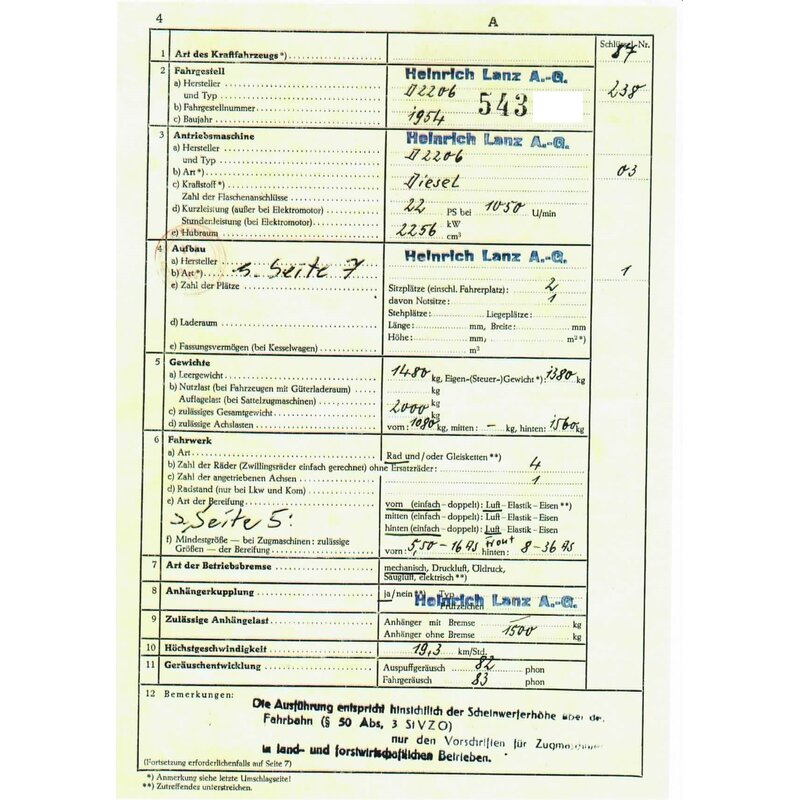 4 A
Schlüssel-Nr.
1 Art des Kraftfahrzeugs*) 87
2 Fahrgestell
a) Hersteller Heinrich Lanz A.-G.
und Typ D2206 238
b) Fahrgestellnummer 543
c) Baujahr 1954
3 Antriebsmaschine
a) Hersteller Heinrich Lanz A.-G.
und Typ D2206
b) Art*) 03
c) Kraftstoff*) Diesel
Zahl der Flaschenanschlüsse
d) Kurzleistung (außer bei Elektromotor) 22 PS bei 1050 U/min
Stundenleistung (bei Elektromotor) kW
e) Hubraum 2256 cm³
4 Aufbau
a) Hersteller Heinrich Lanz A.-G.
b) Art*) s. Seite 7 1
c) Zahl der Plätze Sitzplätze (einschl. Fahrerplatz): 2
davon Notsitze: 1
Stehplätze: Liegeplätze:
d) Laderaum Länge: mm, Breite: mm
Höhe: mm, m²*)
e) Fassungsvermögen (bei Kesselwagen) m³
5 Gewichte
a) Leergewicht 1480 kg, Eigen-(Steuer-)Gewicht*): 1380 kg
b) Nutzlast (bei Fahrzeugen mit Güterladeraum) kg
Auflagelast (bei Sattelzugmaschinen) kg
c) zulässiges Gesamtgewicht 2000 kg
d) zulässige Achslasten vorn: 1080 kg, mitten: – kg, hinten: 1560 kg
6 Fahrwerk
a) Art Rad und/oder Gleisketten**)
b) Zahl der Räder (Zwillingsräder einfach gerechnet) ohne Ersatzräder: 4
c) Zahl der angetriebenen Achsen 1
d) Radstand (nur bei Lkw und Kom)
e) Art der Bereifung vorn (einfach – doppelt): Luft – Elastik – Eisen**)
mitten (einfach – doppelt): Luft – Elastik – Eisen
s. Seite 5: hinten (einfach – doppelt): Luft – Elastik – Eisen
f) Mindestgröße — bei Zugmaschinen: zulässige
Größen — der Bereifung vorn: 5,50–16 AS Front hinten: 8–36 AS
7 Art der Betriebsbremse mechanisch, Druckluft, Öldruck,
Saugluft, elektrisch**)
8 Anhängerkupplung ja/nein**) Typ
Heinrich Lanz A.-G.
Prüfzeichen
9 Zulässige Anhängelast Anhänger mit Bremse kg
Anhänger ohne Bremse 1500 kg
10 Höchstgeschwindigkeit 19,3 km/Std.
11 Geräuschentwicklung Auspuffgeräusch 82 phon
Fahrgeräusch 83 phon
12 Bemerkungen:
Die Ausführung entspricht hinsichtlich der Scheinwerferhöhe über der
Fahrbahn (§ 50 Abs, 3 StVZO)
nur den Vorschriften für
in land- und forstwirtschaftlichen Betrieben.
(Fortsetzung erforderlichenfalls auf Seite 7)
*) Anmerkung siehe letzte Umschlagseite!
**) Zutreffendes unterstreichen.